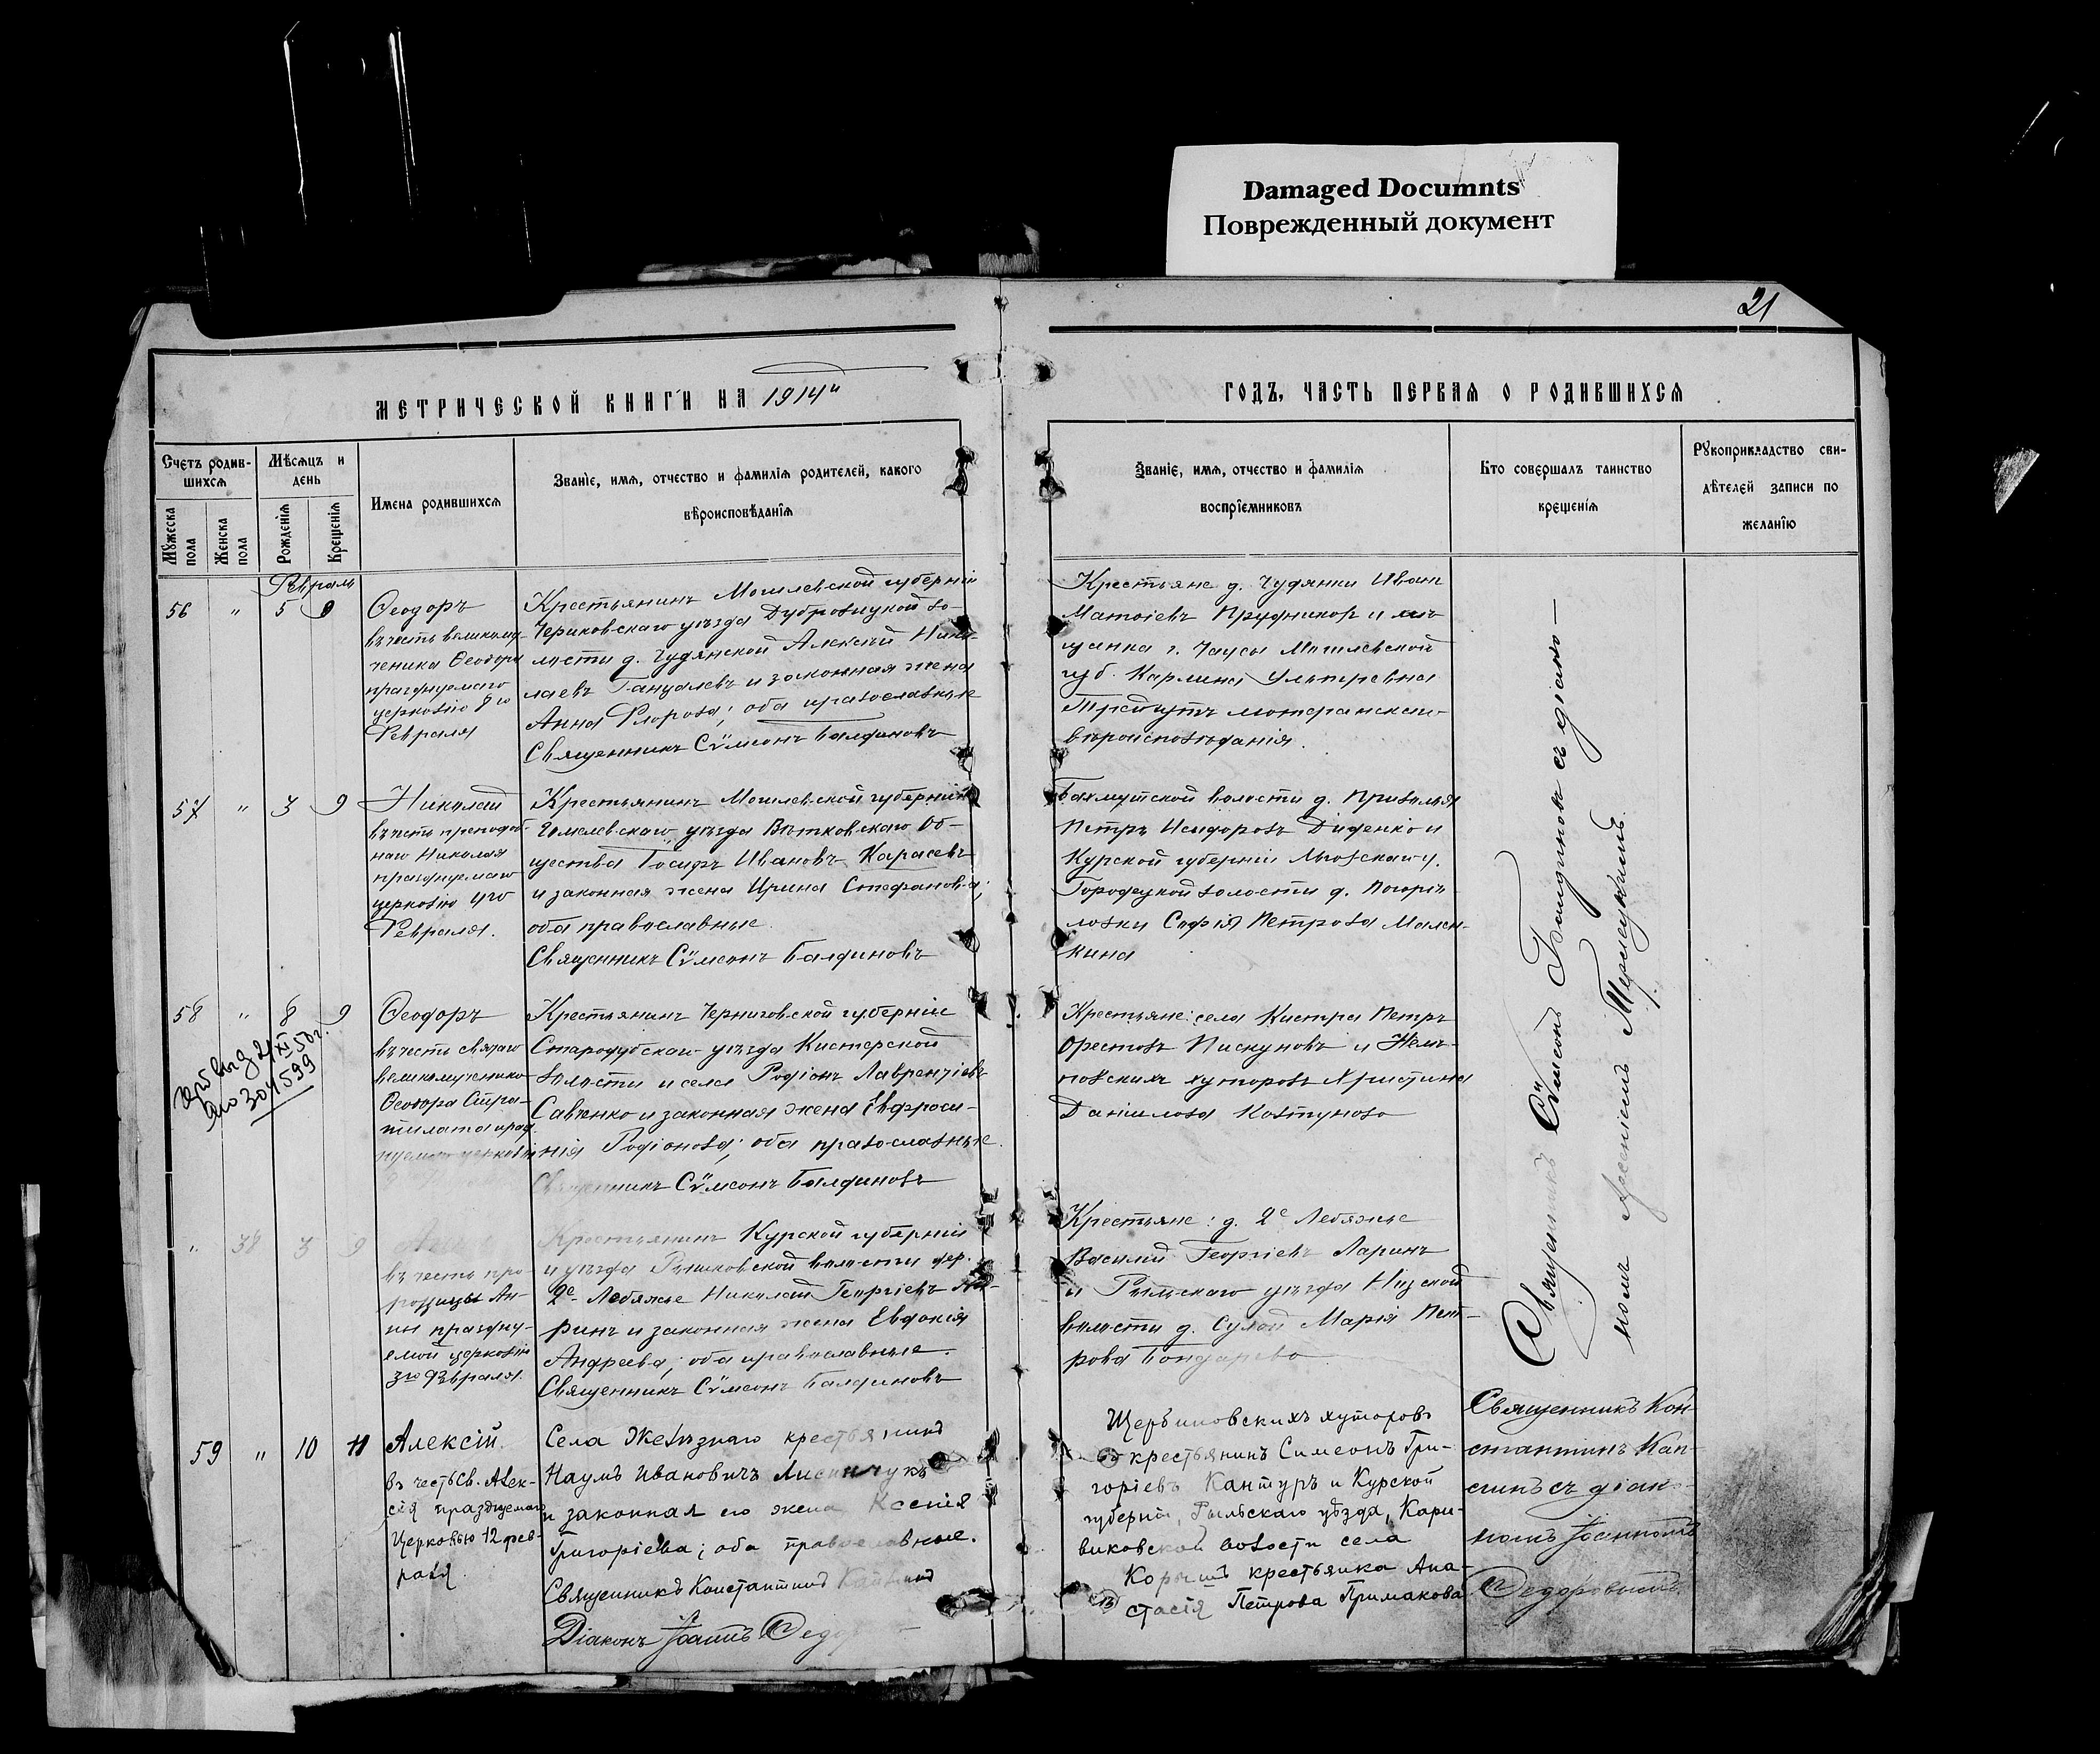 Damaged Documnts
Поврежденный документ
21
МЕТРИЧЕСКОЙ КНИГИ НА 1914й
ГОДЪ, ЧАСТЬ ПЕРВАЯ О РОДИВШИХСЯ
Счетъ родив-
шихся
Мѣсяцъ и
день
Мужеска
пола
Женска
пола
Рожденія
Крещенія
Имена родившихся
Званіе, имя, отчество и фамилія родителей, какого
вѣроисповѣданія
Званіе, имя, отчество и фамилія
воспріемниковъ
Кто совершалъ таинство
крещенія
Рукоприкладство сви-
дѣтелей записи по
желанію
Февраль
56 " 5 9
Ѳеодоръ
въ честь великому-
ченика Ѳеодора
празднуемаго
церковію 8го
Февраля
Крестьянинъ Могилевской губерніи
Чериковскаго уѣзда Дубровицкой во-
лости д. Чудянской Алексѣй Нико-
лаевъ и законная жена
Анна Флорова; оба православные
Священникъ Сѵмеонъ Балдиновъ
Крестьяне д. Чудянки Иванъ
Матѳіевъ Прудниковъ и мѣ-
щанка г. Чаусы Могилевской
губ. Карлина
лютеранскаго
вѣроисповѣданія.
57 " 3 9
Николай
въ честь преподоб-
наго Николая
празднуемаго
церковію 4го
Февраля.
Крестьянинъ Могилевской губерніи
Гомелевскаго уѣзда Вѣтковскаго Об-
щества Іосифъ Ивановъ Карасевъ
и законная жена Ирина Стефанова;
оба православные
Священникъ Сѵмеонъ Балдиновъ
Бахмутской волости д. Приволья
Петръ Исидоровъ Диденко и
Курской губерніи Льговскаго у.
Городецкой волости д. Погорѣ-
ловки Софія Петрова Мален-
кина
58 " 8 9
XI 50 г.
304599
Ѳеодоръ
въ честь святаго
великомученика
Ѳеодора Стра-
тилата празд-
нуемаго церковію
Крестьянинъ Черниговской губерніи
Стародубскаго уѣзда Кистерской
волости и села Родіонъ Лаврентіевъ
Савченко и законная жена Евфроси-
нія Родіонова; оба православные.
Священникъ Сѵмеонъ Балдиновъ
Крестьяне: села Кистра Петръ
Орестовъ Пискуновъ и Нелѣ-
повскихъ хуторовъ Христина
Даніилова Ковтунова
" 38 3 9
въ честь про-
рочицы Ан-
ны праздну-
емой церковію
3го Февраля.
Крестьянинъ Курской губерніи
и уѣзда Рышковской волости дер.
2е Лебяжье Николай Георгіевъ Ла-
ринъ и законная жена Евдокія
Андреева; оба православные.
Священникъ Сѵмеонъ Балдиновъ
Крестьяне: д. 2е Лебяжье
Василій Георгіевъ Ларинъ
и Рыльскаго уѣзда
волости д. Марія Пет-
рова Бондарева
Священникъ Сѵмеонъ Балдиновъ съ діако-
номъ Арсеніемъ
59 " 10 11
Алексій.
въ честь св. Алек-
сія празднуемаго
Церковью 12 фев-
раля.
Села Желѣзнаго крестьянинъ
Наумъ Ивановичъ Лисинчукъ
и законная его жена Ксенія
Григоріева; оба православные.
Священникъ Константинъ
Діаконъ Іоаннъ
Щербиновскихъ хуторовъ
крестьянинъ Симеонъ Гри-
горіевъ Кантуръ и Курской
губерніи, Рыльскаго уѣзда,
волости села
крестьянка Ана-
стасія Петрова Примакова
Священникъ Кон-
стантинъ
съ діако-
номъ Іоанномъ